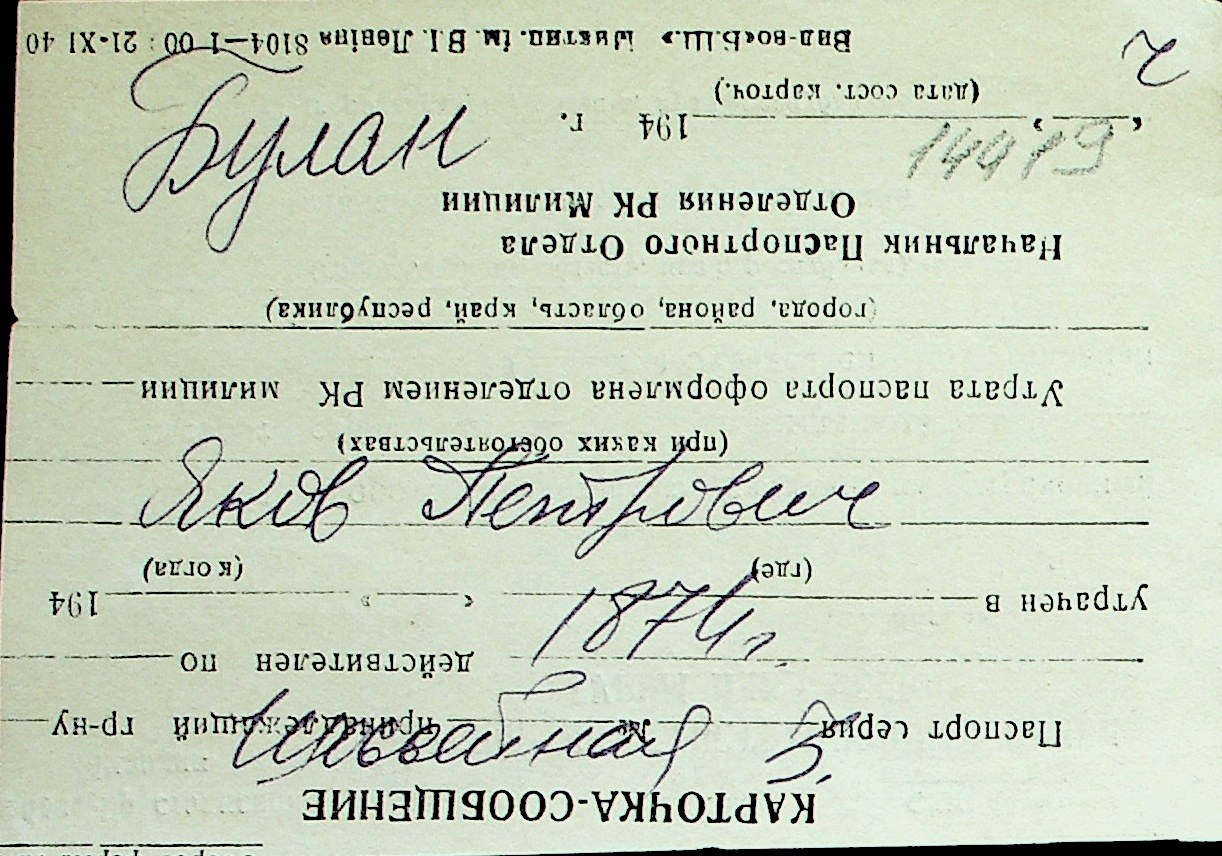 2
Булан
14919
Яков Петрович
1874 г.
Швейная 5.
КАРТОЧКА-СООБЩЕНИЕ
Паспорт серия № принадлежащий гр-ну
действителен по
утрачен в « » 194
(где) (когда)
(при каких обстоятельствах)
Утрата паспорта оформлена отделением РК милиции
(города, района, область, край, республика)
Начальник Паспортного Отдела
Отделения РК Милиции
« » 194 г.
(дата сост. карточ.)
Вид-во «Б.Ш.» ім. В. І. Леніна 8104—1 00 : 21-XI 40